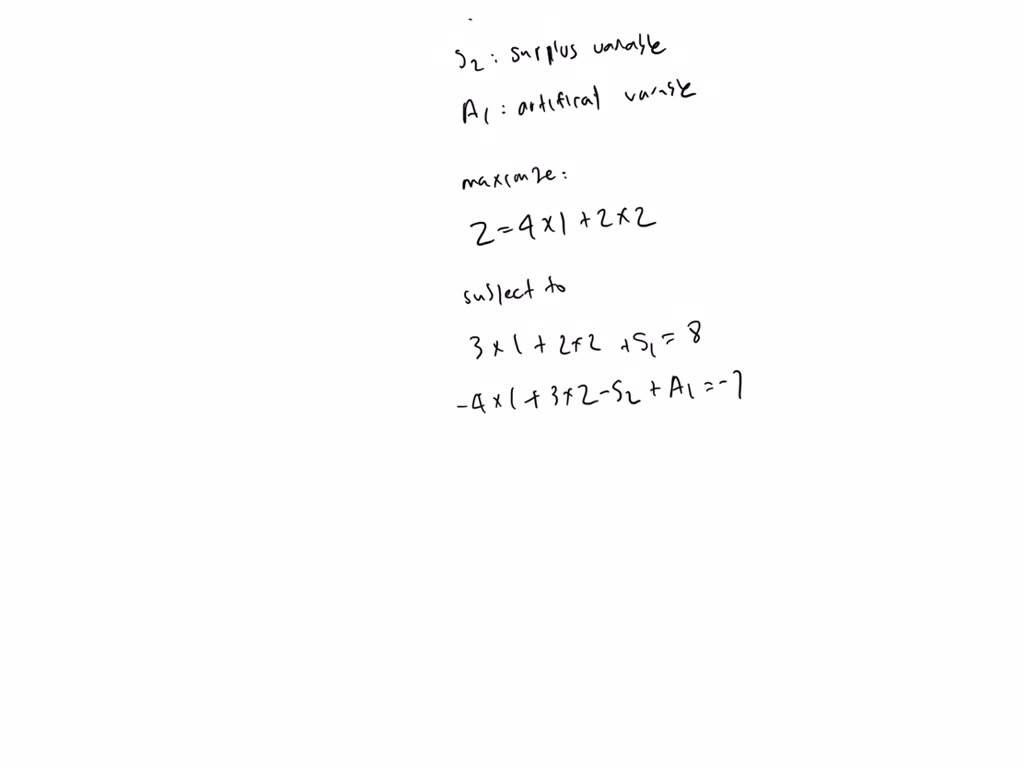 S2 : surplus variable
A1 : artificial variable
maximize:
Z = 4x1 + 2x2
subject to
3x1 + 2x2 + S1 = 8
-4x1 + 3x2 - S2 + A1 = -7